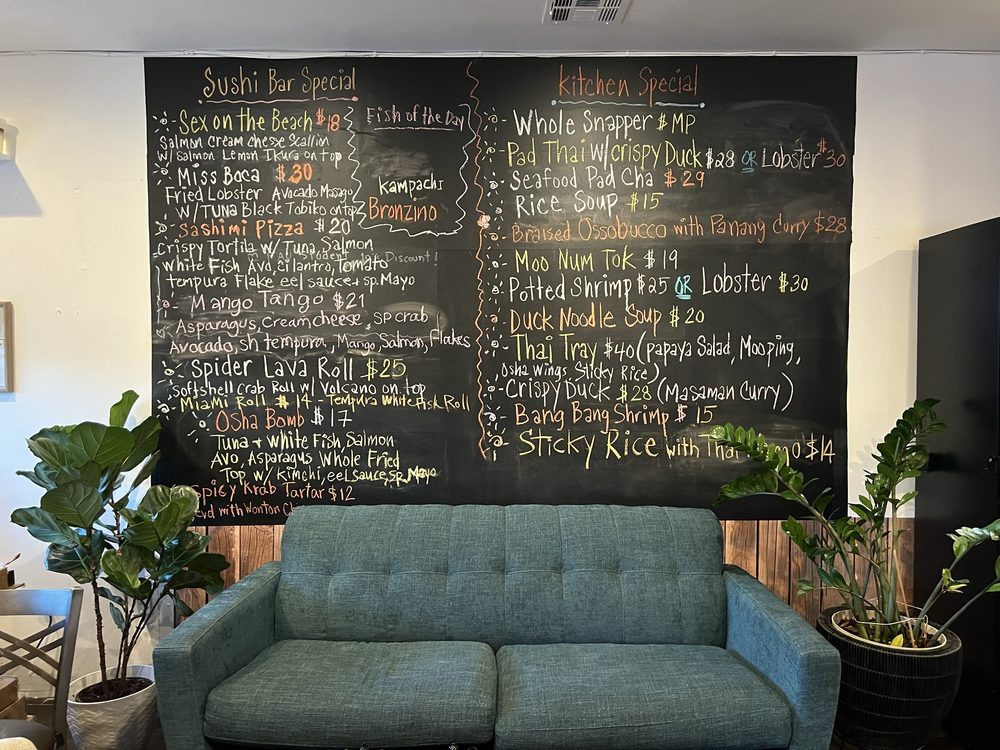 Sushi Bar Special
Sex on the Beach $18
Salmon Cream cheese Scallin
w/ Salmon Lemon Ikura on top
Miss Boca $30
Fried Lobster Avocado Masago
w/ TUNA Black Tobiko on top
Sashimi Pizza $20
Crispy Tortila w/ Tuna, Salmon
White Fish Avo, cilantro, Tomato
tempura Flake eel sauce + sp. Mayo
Mango Tango $21
Asparagus, Cream cheese, sp crab
Avocado, sh tempura, Mango, Salmon, Flakes
Spider Lava Roll $25
softshell crab Roll w/ Volcano on top
Miami Roll $14 - Tempura White Fish Roll
Osha Bomb $17
Tuna + white Fish, Salmon
Avo, Asparagus Whole Fried
Top w/ kimchi, eel sauce, sp. Mayo
Spicy Krab Tartar $12
with Wonton
Fish of the Day
Kampachi
Bronzino
Discount!
Kitchen Special
Whole Snapper $ MP
Pad Thai w/ crispy Duck $28 OR Lobster $30
Seafood Pad Cha $29
Rice Soup $15
Braised Ossobucco with Panang Curry $28
Moo Num Tok $19
Potted Shrimp $25 OR Lobster $30
Duck Noodle Soup $20
Thai Tray $40 (papaya Salad, Moo ping,
Osha Wings, Sticky Rice)
Crispy Duck $28 (Masaman Curry)
Bang Bang Shrimp $15
Sticky Rice with Thai $14